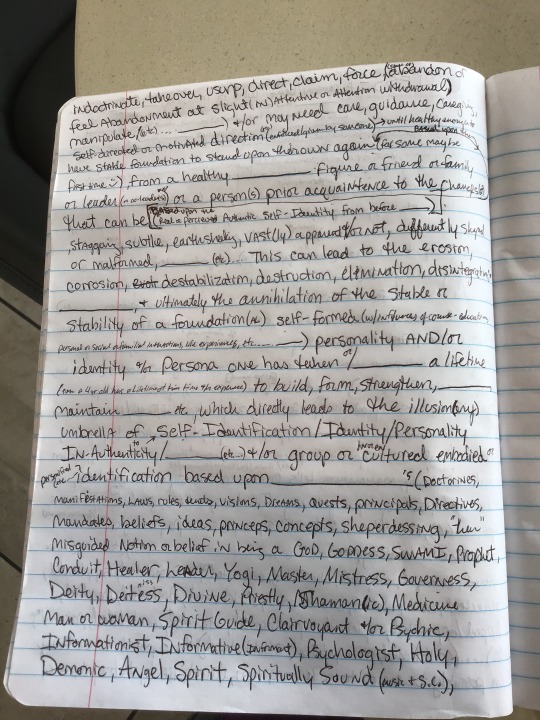 indoctrinate, takeover, usurp, direct, claim, force, abandon or
feel Abandonment at slight (IN)Attentive or Attention withdrawal)
manipulate, (etc) ... ____) &/or may need care, guidance, Caregiving,
self-directed or motivated direction (or entrusted/given by someone) → until healthy enough to
have stable foundation to stand upon their own again (for some maybe Based upon the
first time :) ), from a healthy ________ Figure or friend or family
or leader (or co-leaders) or a person(s) prior acquaintence to the (change(s))
that can be [(Based upon the Real or Perceived Authentic Self-Identity from before ____)].
staggain, subtle, earthshaking, vast(ly) apparent &/or not, differently shaped
or malformed, ____ (etc)... This can lead to the erosion,
corrosion, destabilization, destruction, elimination, disintegration,
________, & ultimately the annihilation of the stable or
stability of a foundation(al) self-formed (w/influences of course - education
personal or social or familial interactions, life experiences, etc. ... ____) personality AND/or
identity &/or Persona one has taken or/____ a lifetime
to build, form, strengthen, ____
maintain ____ etc, which directly leads to the illusion(ary)
umbrella of → Self-Identification/Identity/Personality
IN-Authenticity to/____ (etc...) &/or group or cultured embodied or
personified identification based upon ________'s (Doctorines,
manifestations, Laws, rules, visions, Dreams, Quests, principals, Directives,
Mandates, beliefs, ideas, princeps, concepts, sheperdessing, "their"
misguided Notion or belief in being a GOD, GODDESS, SWAMI, Prophet,
Conduit, Healer, Leader, Yogi, Master, Mistress, Governess,
Deity, Deitess, Divine, Priestly, /Shaman(ic), Medicine
Man or woman, Spirit Guide, Clairvoyant &/or Psychic,
Informationist, Informative (Informant), Psychologist, Holy,
Demonic, Angel, Spirit, Spiritually Sound (music &